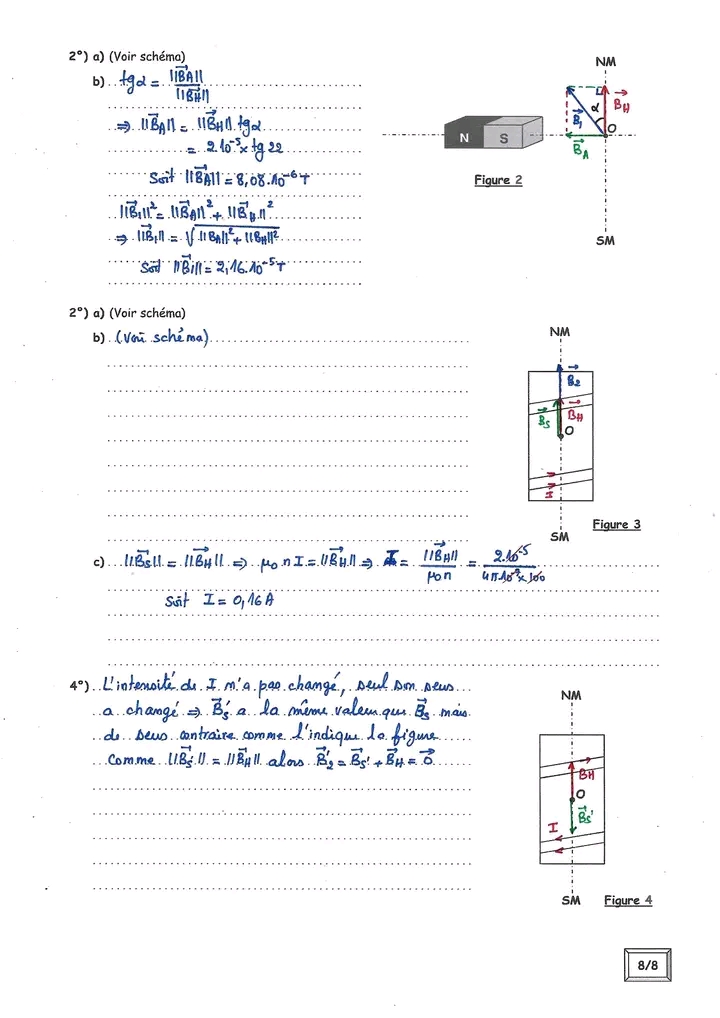 2°) a) (Voir schéma)
b) tgα = ||B⃗A|| / ||B⃗H||
⇒ ||B⃗A|| = ||B⃗H||.tgα
= 2.10⁻⁵ × tg 22
Soit ||B⃗A|| = 8,08.10⁻⁶ T
||B⃗1||² = ||B⃗A||² + ||B⃗H||²
⇒ ||B⃗1|| = √||BA||² + ||BH||²
Soit ||B⃗1|| = 2,16.10⁻⁵ T
NM
B⃗H
α
B⃗1
O
B⃗A
N S
Figure 2
SM
2°) a) (Voir schéma)
b) (Voir schéma)
NM
B⃗2
B⃗S
B⃗H
O
I
SM
Figure 3
c) ||B⃗S|| = ||B⃗H|| ⇒ μ0 n I = ||B⃗H|| ⇒ I = ||B⃗H|| / μ0 n = 2.10⁻⁵ / 4π10⁻⁷ × 100
Soit I = 0,16 A
4°) L'intensité de I n'a pas changé, seul son sens
a changé ⇒ B⃗S' a la même valeur que B⃗S mais
de sens contraire comme l'indique la figure
Comme ||B⃗S'|| = ||B⃗H|| alors B⃗'2 = B⃗S' + B⃗H = 0⃗
NM
B⃗H
O
B⃗S'
I
SM
Figure 4
8/8